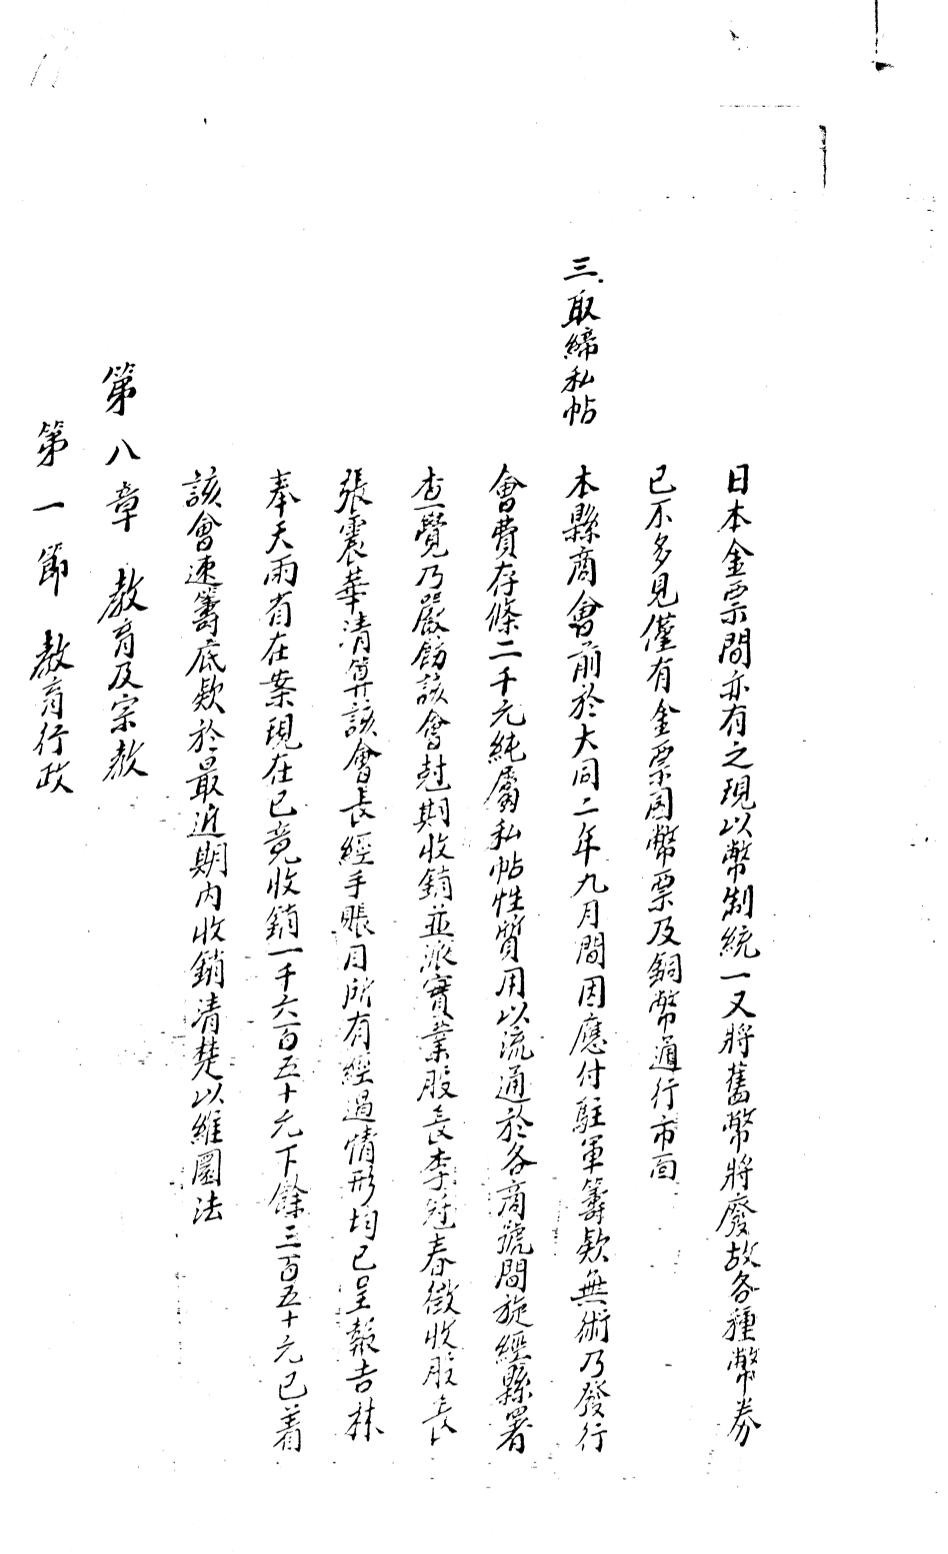 日本金票間亦有之現以幣制統一又將舊幣將廢故各種幣券
已不多見僅有金票国幣票及銅幣通行市面
三.取締私帖
本縣商會前於大同二年九月間因應付駐軍籌款無術乃發行
會費存條二千元純屬私帖性質用以流通於各商號間旋經縣署
查覺乃嚴飭該會尅期收銷並派實業股長李冠春徵收股長
張震華清算該會長經手賬目所有經過情形均已呈報吉林
奉天兩省在案現在已竟收銷一千六百五十元下餘三百五十元已着
該會速籌底款於最近期内收銷清楚以維圜法
第八章 教育及宗教
第一節 教育行政